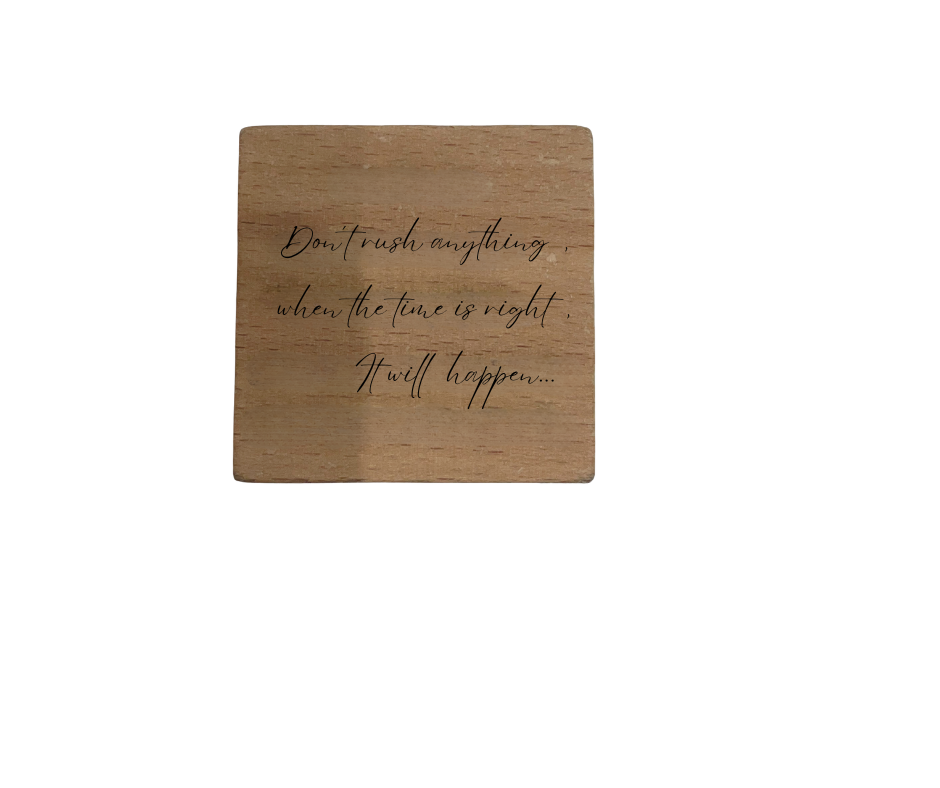 Don't rush anything ,
when the time is right ,
It will happen...